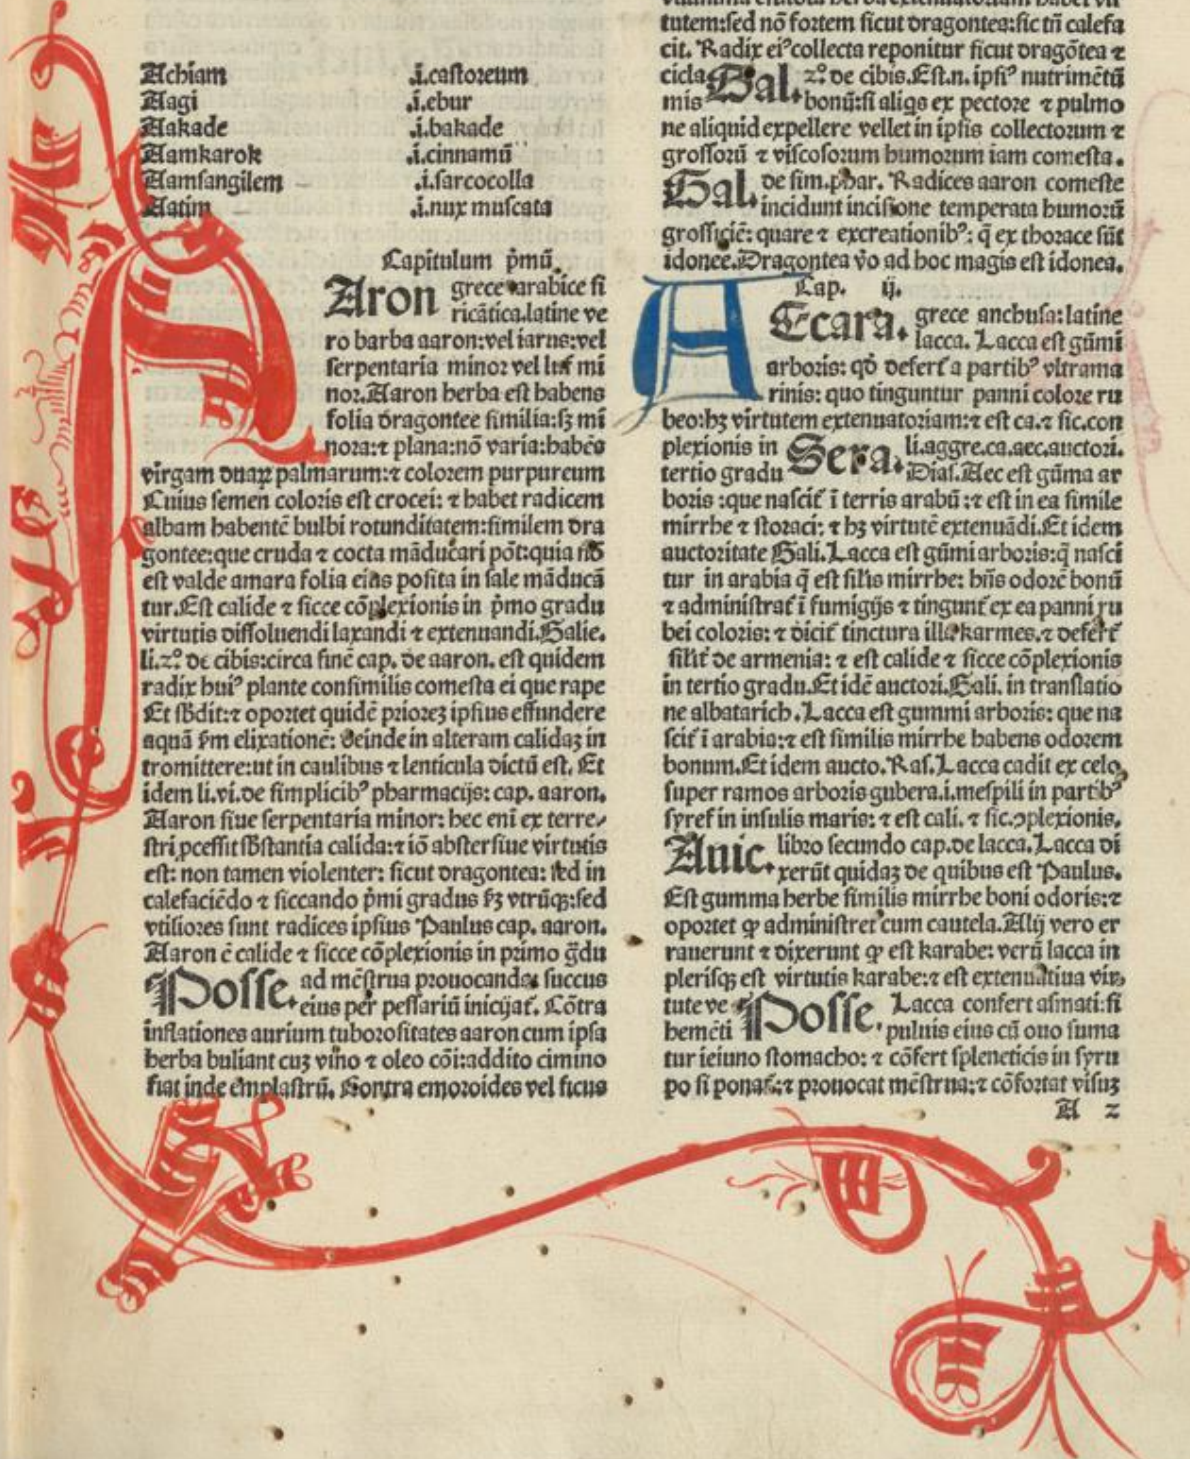 Achiam .i.castoreum
Aagi .i.ebur
Aakade .i.bakade
Aamkarok .i.cinnamū
Aamsangilem .i.sarcocolla
Aatim .i.nux muscata
Capitulum p̄mū.
Aron grece arabice si
ricātica.latine ve
ro barba aaron:vel iarus:vel
serpentaria minor vel luf mi
nor.Aaron herba est habens
folia dragontee similia:sꝫ mi
nora:⁊ plana:nō varia:habēs
virgam duaꝝ palmarum:⁊ colorem purpureum
Cuius semen coloris est crocei: ⁊ habet radicem
albam habentē bulbi rotunditatem:similem dra
gontee:que cruda ⁊ cocta māducari pōt:quia nō
est valde amara folia eius posita in sale māducā
tur.Est calide ⁊ sicce cōplexionis in p̄mo gradu
virtutis dissoluendi laxandi ⁊ extenuandi.Galie.
li.2º de cibis:circa finē cap. de aaron. est quidem
radix huiꝰ plante consimilis comesta ei que rape
Et sb̄dit:⁊ oportet quidē prioreꝫ ipsius effundere
aquā ẜm elixationē: deinde in alteram calidaꝫ in
tromittere:ut in caulibus ⁊ lenticula dictū est. Et
idem li.vi.de simplicibꝰ pharmacijs: cap. aaron.
Aaron siue serpentaria minor: hec eni ex terre/
stri ꝓcessit sb̄stantia calida:⁊ iō abstersiue virtutis
est: non tamen violenter: sicut dragontea: sed in
calefaciēdo ⁊ siccando p̄mi gradus ẜꝫ vtrūqꝫ:sed
vtiliores sunt radices ipsius Paulus cap. aaron.
Aaron ē calide ⁊ sicce cōplexionis in primo gͣdu
Posse. ad mēstrua prouocanda: succus
eius per pessariū inicijat̄. Cōtra
inflationes aurium tuborositates aaron cum ipsa
herba buliant cuꝫ vino ⁊ oleo cōi:addito cimino
fiat inde emplastrū. Contra emoroides vel ficus
tutem:sed nō fortem sicut dragontea:sic tn̄ calefa
cit. Radix eiꝰ collecta reponitur sicut dragōtea ⁊
cicla
mis Gal. 2º de cibis.Est.n. ipsiꝰ nutrimētū
bonū:si aliqs ex pectore ⁊ pulmo
ne aliquid expellere vellet in ipsis collectorum ⁊
grossorū ⁊ viscosorum humorum iam comesta.
Gal. de sim.phar. Radices aaron comeste
incidunt incisione temperata humorū
grossiciē: quare ⁊ excreationibꝰ: q̄ ex thorace sūt
idonee.Dragontea v̄o ad hoc magis est idonea.
Cap. ij.
Accara. grece anchusa:latine
lacca. Lacca est gūmi
arboris: qd̄ defert̄ a partibꝰ vltrama
rinis: quo tinguntur panni colore ru
beo:hꝫ virtutem extenuatoriam:⁊ est ca.⁊ sic.con
plexionis in
tertio gradu Sera. li.aggre.ca.aec.auctori.
Dias.Aec est gūma ar
boris :que nascit̄ ī terris arabū:⁊ est in ea simile
mirrhe ⁊ storaci: ⁊ hꝫ virtutē extenuādi.Et idem
auctoritate Gali.Lacca est gūmi arboris:q̄ nasci
tur in arabia q̄ est silis mirrhe: hn̄s odorē bonū
⁊ administrat̄ ī fumigijs ⁊ tingunt̄ ex ea panni ru
bei coloris: ⁊ dicit̄ tinctura illa karmes.⁊ defert̄
silit̄ de armenia: ⁊ est calide ⁊ sicce cōplexionis
in tertio gradu.Et idē auctori.Gali. in translatio
ne albatarich.Lacca est gummi arboris: que na
scit̄ ī arabia:⁊ est similis mirrhe habens odorem
bonum.Et idem aucto.Ras.Lacca cadit ex celo
super ramos arboris gubera.i.mespili in partibꝰ
syref in insulis maris: ⁊ est cali. ⁊ sic.ꝯplexionis.
Auic. libro secundo cap.de lacca.Lacca di
xerūt quidaꝫ de quibus est Paulus.
Est gumma herbe similis mirrhe boni odoris:⁊
oportet ꝙ administret̄ cum cautela.Alij vero er
rauerunt ⁊ dixerunt ꝙ est karabe: verū lacca in
plerisqꝫ est virtutis karabe:⁊ est extenuatiua vir
tute ve
hemēti Posse. Lacca confert asmati:si
puluis eius cū ouo suma
tur ieiuno stomacho: ⁊ cōfert spleneticis in syru
po si ponat̄:⁊ prouocat mēstrua:⁊ cōfortat visuꝫ
A 2